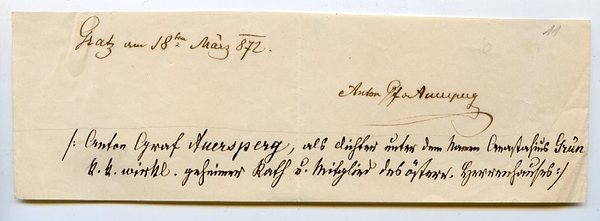 11
Gratz am 18ten März 872.
Anton Gf v Auersperg
/: Anton Graf Auersperg, als Dichter unter dem Namen Anastasius Grün
k. k. wirkl. geheimer Rath u. Mitglied des österr. Herrenhauses :/